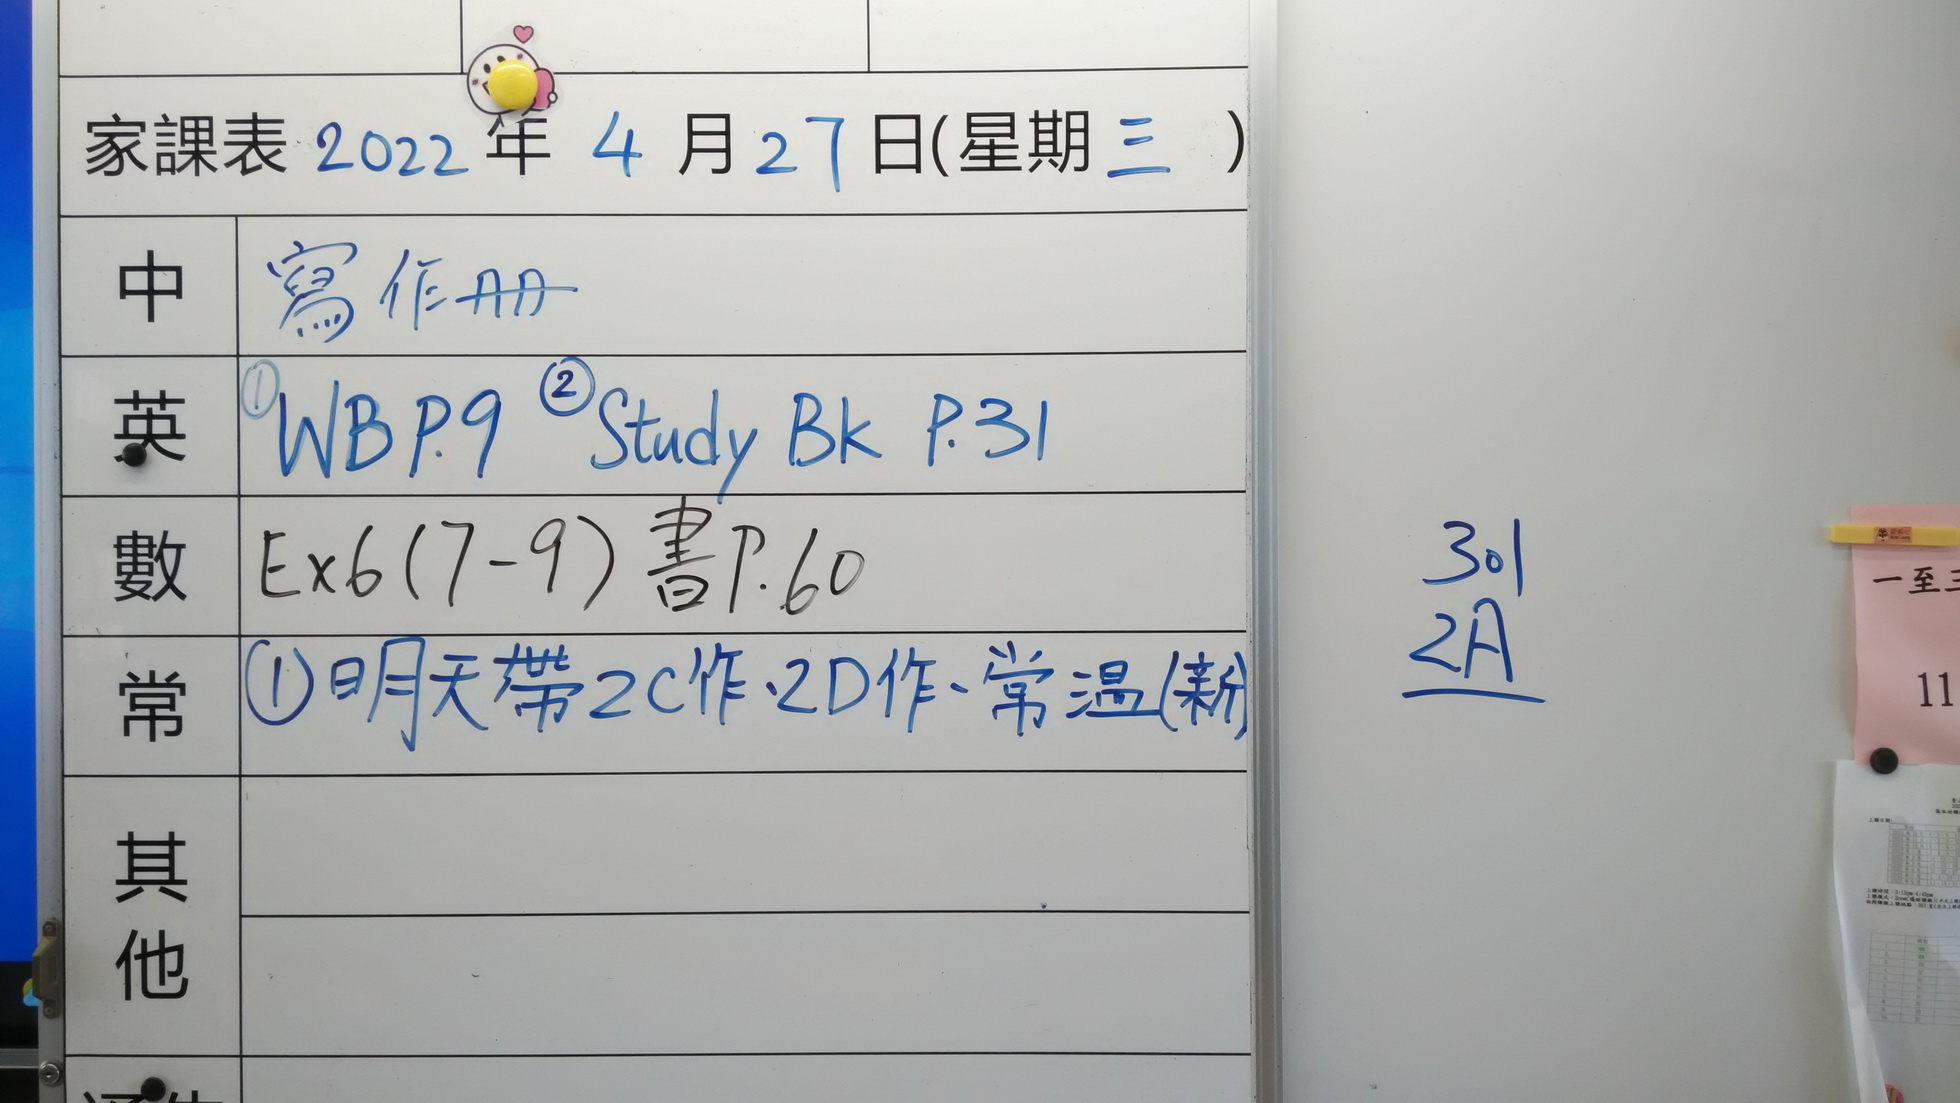 家課表 2022 年 4 月 27 日(星期 三 )
中 寫作冊
英 ①WB P.9 ②Study Bk P.31
數 Ex6(7-9) 書P.60
常 ①明天帶2C作、2D作、常温(新)
其他
301
2A
一至三
11